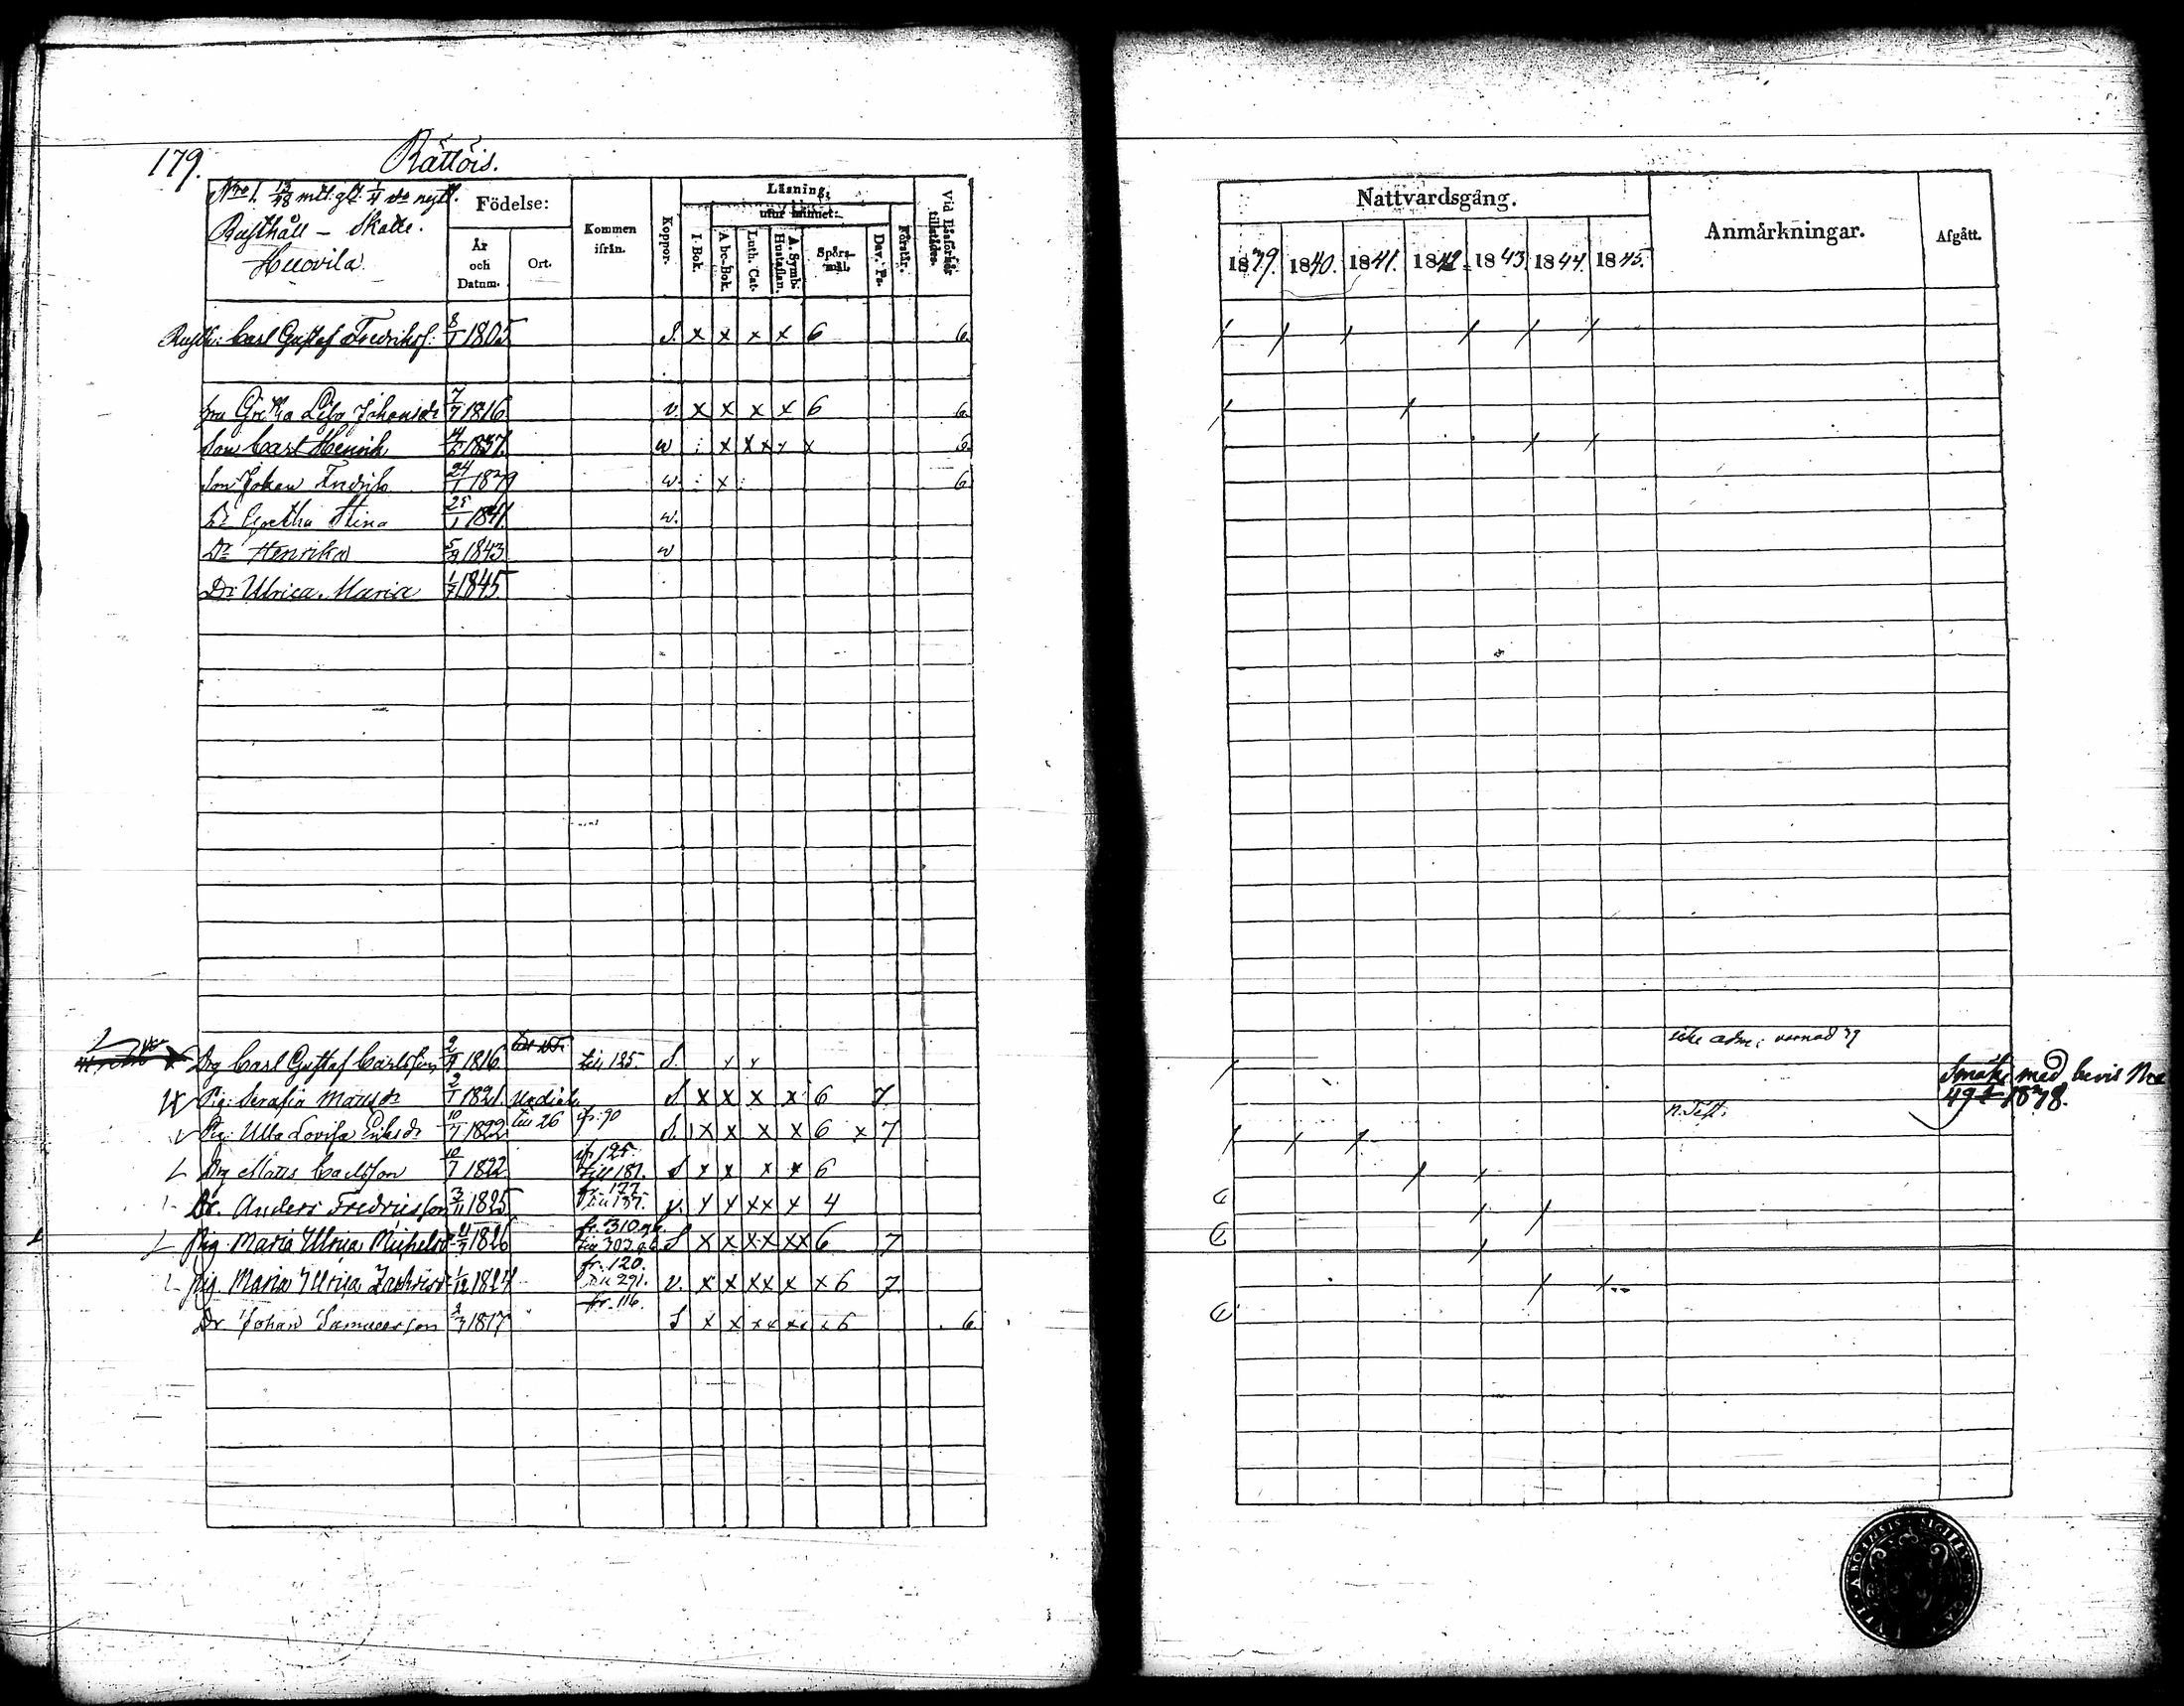 179. Rättöis.
Nro 1. 13/48 mtl. glt. 1/4 do nytt.
Rusthåll – Skatte.
Huovila.
Födelse:
År och Datum.
Ort.
Kommen ifrån.
Koppor.
Läsning,
utur minnet:
I Bok.
A bc-Bok.
Luth. Cat.
A. Symb. Hustaflan.
Spörsmål.
Dav. Ps.
Förstår.
Vid Läsförhör tillstädes.
Rusth: Carl Gustaf Fredrikss: 8/1 1805 S. x x x x 6 6.
hru Gretha Lisa Johansdr 7/7 1816 v. x x x x 6 6.
Son Carl Henrik 1837. w : x x x x x 6.
Son Johan Fredrik 24/1 1839 w. : x : 6
Dr Gretha Stina 25/1 1841. w.
Dr Henrika 5/9 1843 w
Dr Ulrica Maria 1/7 1845.
Drg Carl Gustaf Carlsson 2/9 1816. till 125. S. x x
Pig: Serafia Matsdr 2/1 1821. S x x x x 6 7
Pig: Ulla Lovisa Eriksdr 10/7 1822 till 26 fr: 90 S. x x x x 6 x 7
Drg Matts Carlsson 10/7 1822 fr 125. till 187. S x x x x 6
Dr. Anders Fredriksson 3/11 1825 fr. 177 till 137. v. x x x x x 4
Pig. Maria Ulrica Michelsdr 1826 fr. 310 S x x x x x x 6 7
Pig. Maria Ulrica 1/12 1824 fr. 120. till 291. v. x x x x x x 6 7
Dr Johan Samuelsson 2/7 1817 fr. 116. S x x x x x x x 6 6.
Nattvardsgång.
1839. 1840. 1841. 1842. 1843 1844. 1845.
Anmärkningar.
Afgått.
icke adm: varnad 39
med bevis Nro
49 1838.
n. Test.